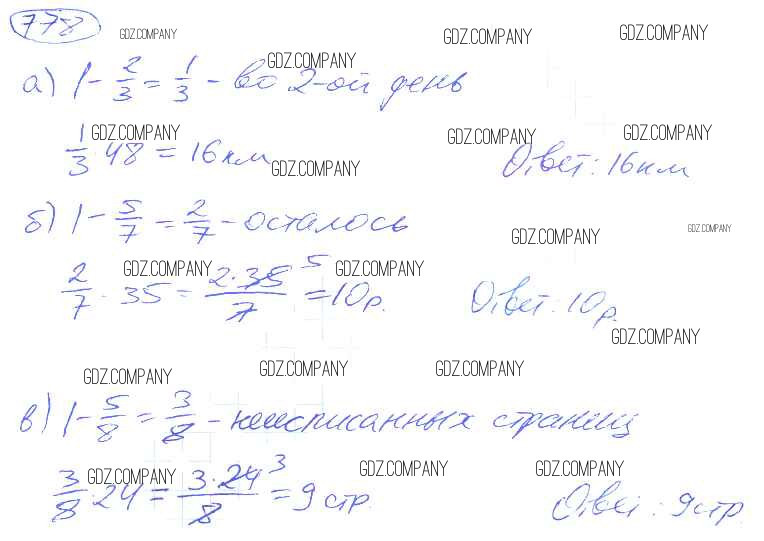 778
GDZ.COMPANY GDZ.COMPANY GDZ.COMPANY
GDZ.COMPANY
а) 1 - 2/3 = 1/3 - во 2-ой день
GDZ.COMPANY GDZ.COMPANY GDZ.COMPANY
1/3 · 48 = 16 км Ответ: 16 км
GDZ.COMPANY
б) 1 - 5/7 = 2/7 - осталось
GDZ.COMPANY GDZ.COMPANY
GDZ.COMPANY GDZ.COMPANY
2/7 · 35 = 2·35 5/7 = 10 р. Ответ: 10 р.
GDZ.COMPANY
GDZ.COMPANY GDZ.COMPANY GDZ.COMPANY
в) 1 - 5/8 = 3/8 - неисписанных страниц
GDZ.COMPANY GDZ.COMPANY GDZ.COMPANY
3/8 · 24 = 3·24 3/8 = 9 стр. Ответ: 9 стр